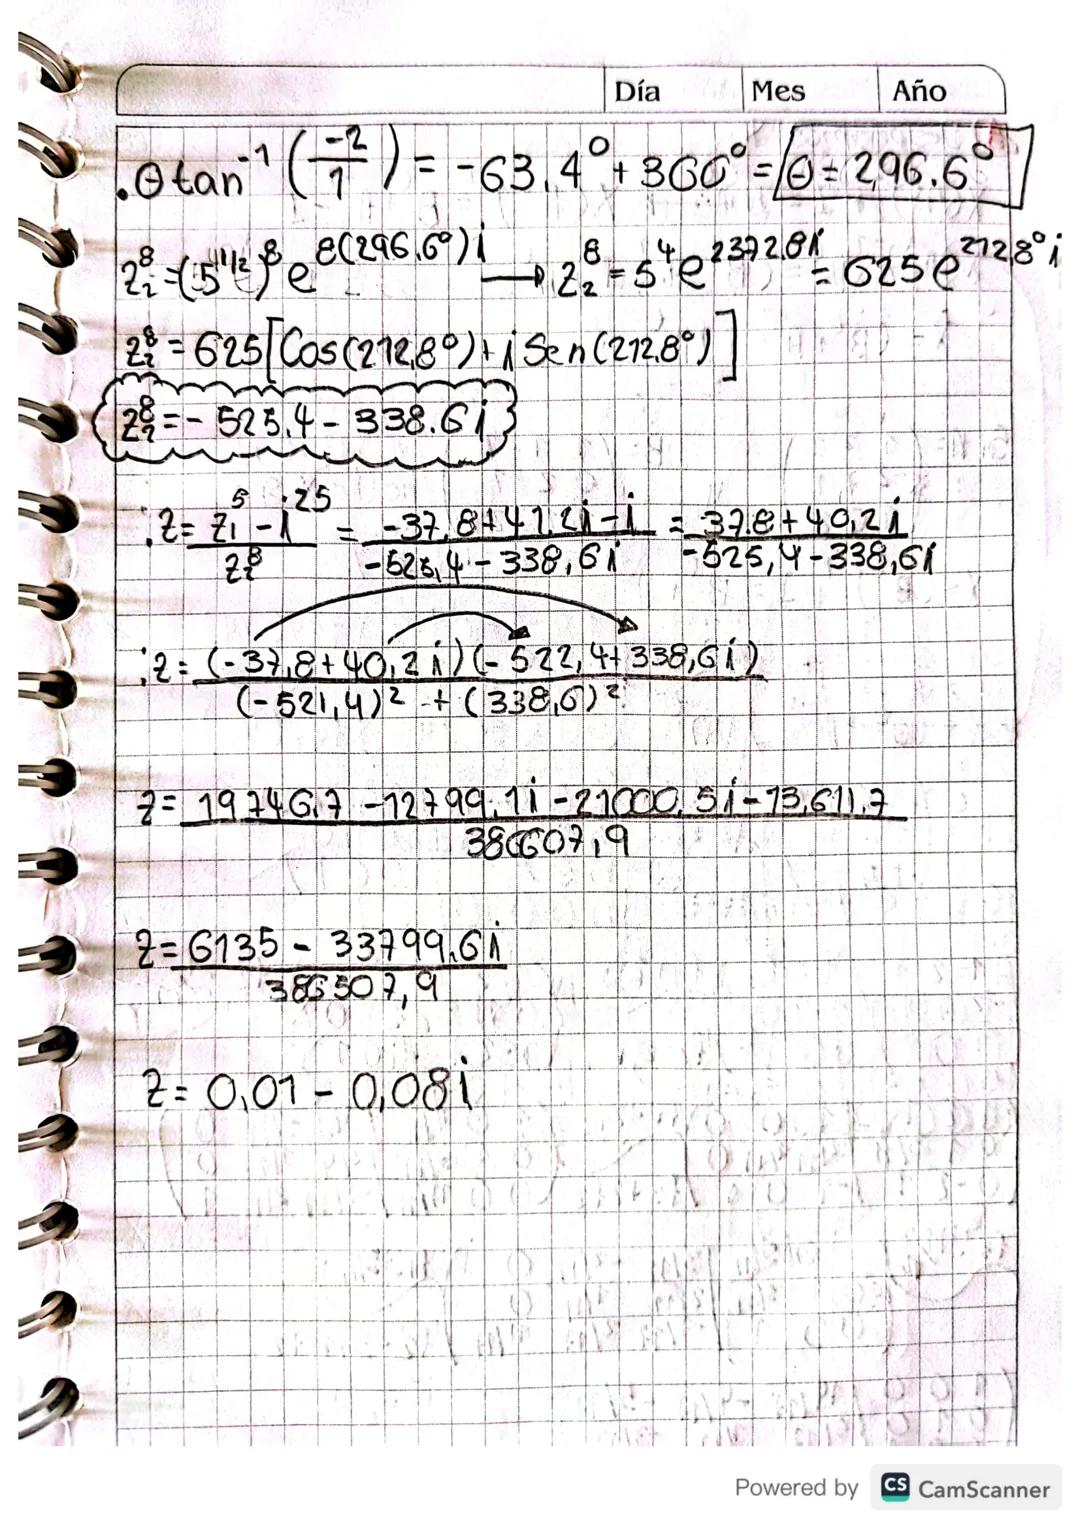 Día Mes Año
. θ tan⁻¹ (-2/1) = -63,4° + 360° = θ = 296.6°
z₂⁸ = (5^1/2)⁸ e^8(296.6°)i → z₂⁸ = 5⁴ e^2372.8i = 625 e^212,8°i
z₂⁸ = 625 [Cos(212,8°) + i Sen(212.8°)]
z₂⁸ = - 525.4 - 338.6i
∴ z = (z₁⁵ - i²⁵)/z₂⁸ = (-37,8 + 41.2i - i)/(-525,4 - 338,6i) = (-37.8 + 40,2i)/(-525,4 - 338,6i)
∴ z = (-37,8 + 40,2i)(-522,4 + 338,6i)/((-521,4)² + (338,6)²)
z = (19746,7 - 12799,1i - 21000,5i - 13,611,7)/386607,9
z = (6135 - 33799,6i)/386507,9
z = 0,01 - 0,08i
Powered by CS CamScanner